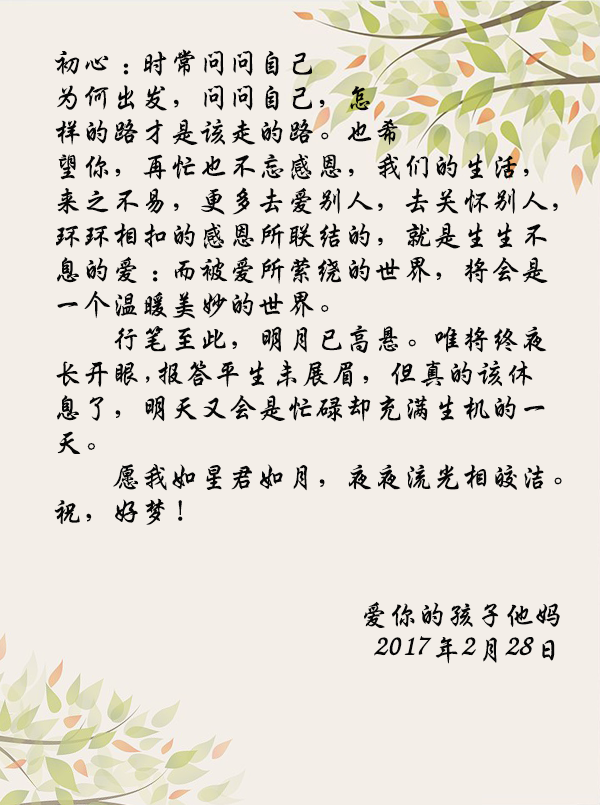 初心：时常问问自己
为何出发，问问自己，怎
样的路才是该走的路。也希
望你，再忙也不忘感恩，我们的生活，
来之不易，更多去爱别人，去关怀别人，
环环相扣的感恩所联结的，就是生生不
息的爱：而被爱所萦绕的世界，将会是
一个温暖美妙的世界。
行笔至此，明月已高悬。唯将终夜
长开眼,报答平生未展眉，但真的该休
息了，明天又会是忙碌却充满生机的一
天。
愿我如星君如月，夜夜流光相皎洁。
祝，好梦！
爱你的孩子他妈
2017年2月28日